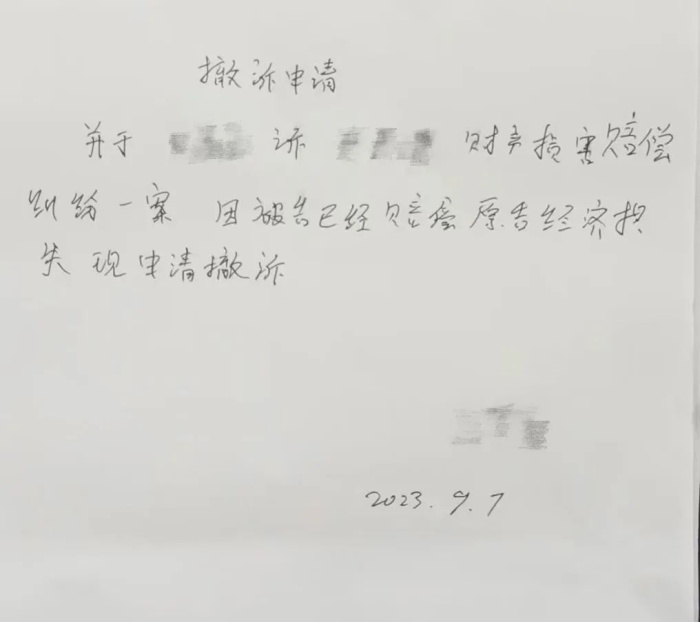 撤诉申请
关于 诉 财产损害赔偿
纠纷一案 因被告已经赔偿原告经济损
失 现申请撤诉
2023.9.7